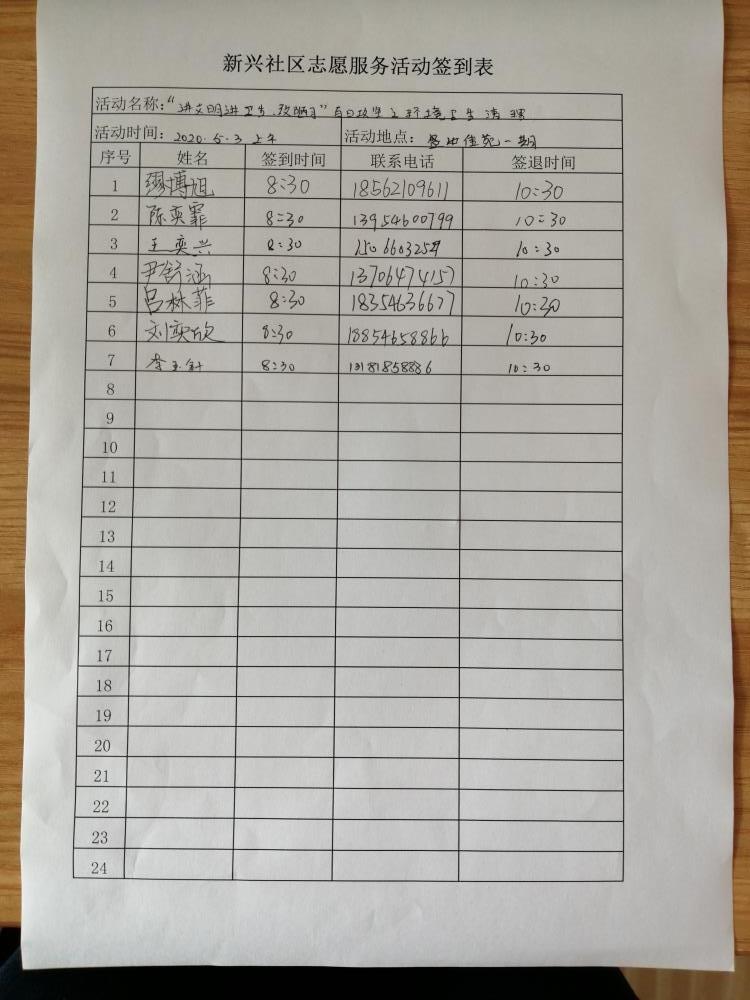 新兴社区志愿服务活动签到表
活动名称：“讲文明讲卫生、改陋习”百日攻坚之环境卫生清理
活动时间：2020.5.3 上午 活动地点：佳苑一期
序号 姓名 签到时间 联系电话 签退时间
1 缪博旭 8:30 18562109611 10:30
2 陈奕霏 8:30 13954600799 10:30
3 王奕兴 8:30 10:30
4 尹舒涵 8:30 13706474157 10:30
5 吕林菲 8:30 18354636677 10:30
6 刘奕欣 8:30 18854658866 10:30
7 李玉 8:30 13181858886 10:30
8
9
10
11
12
13
14
15
16
17
18
19
20
21
22
23
24